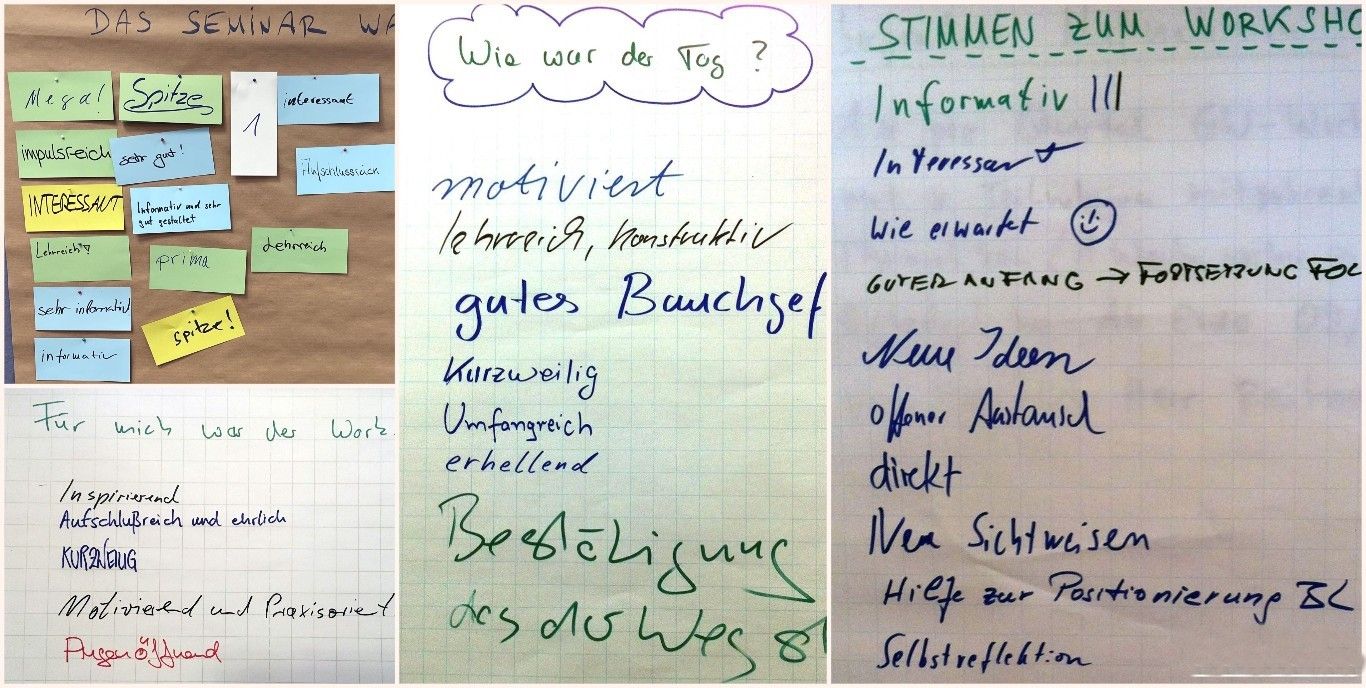 DAS SEMINAR WA
Mega!
Spitze
1
interessant
impulsreich
sehr gut!
Aufschlussreich
INTERESSANT
Informativ und sehr
gut gestaltet
Lehrreich!
prima
Lehrreich
sehr informativ
spitze!
informativ
Für mich war der Work
Inspirierend
Aufschlußreich und ehrlich
Motivierend und Praxisorient
Augenöffnend
Wie war der Tag ?
motiviert
lehrreich, konstruktiv
gutes Bauchgef
Kurzweilig
Umfangreich
erhellend
Bestätigung
das der Weg
STIMMEN ZUM WORKSHO
Informativ |||
Interessant
Wie erwartet
GUTER ANFANG → FORTSETZUNG FOL
Neue Ideen
offener Austausch
direkt
Neue Sichtweisen
Hilfe zur Positionierung
Selbstreflektion